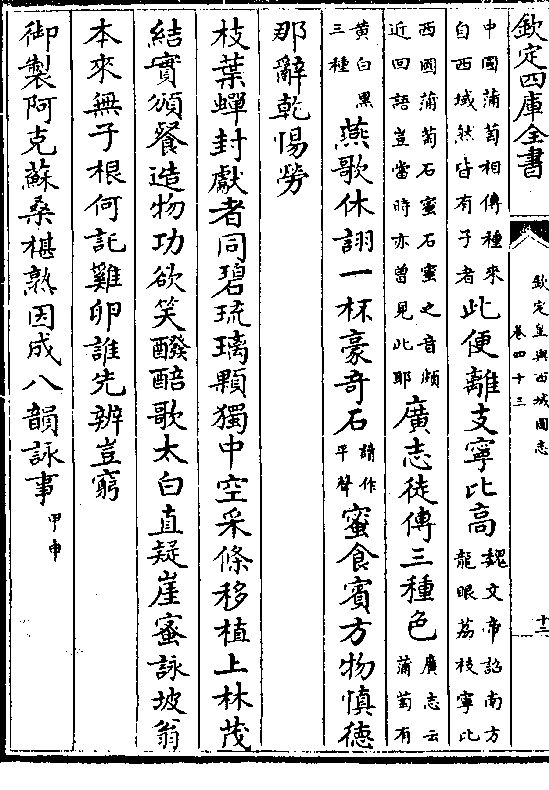 欽定四庫全書
欽定皇輿西域圖志
卷四十三
十二
中國蒲萄相傳種來自西域然皆有子者此便離支寧比高魏文帝詔南方龍眼荔枝寧比
西國蒲萄石蜜石蜜之音頗近回語豈當時亦曾見此耶廣志徒傳三種色廣志云蒲萄有
黃白黑三種燕歌休詡一杯豪奇石讀作平聲蜜食賓方物慎德
那辭乾惕勞
枝葉蟬封獻者同碧琉璃顆獨中空采條移植上林茂
結實頒餐造物功欲笑醱醅歌太白直疑崖蜜詠坡翁
本來無子根何託雞卵誰先辨豈窮
御製阿克蘇桑椹熟因成八韻詠事甲申